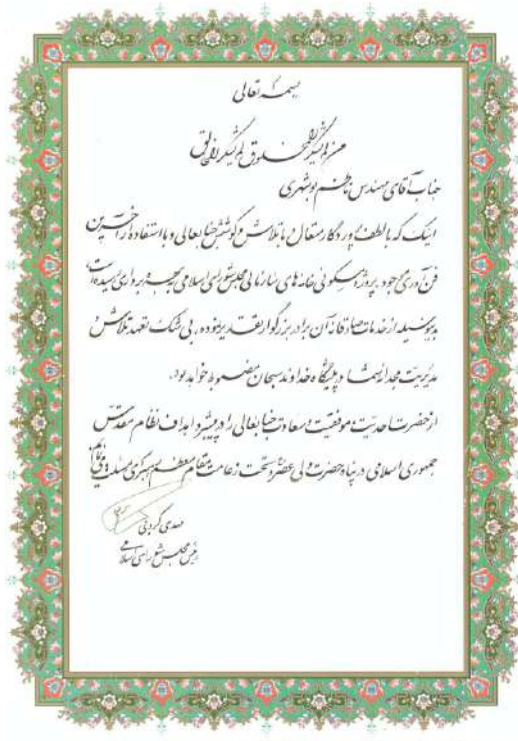 بسمه تعالی
من لم یشکر المخلوق لم یشکر الخالق
جناب آقای مهندس کاظم بوشهری
اینک که با لطف پروردگار متعال و با تلاش و کوشش جنابعالی و با استفاده از آخرین
فن آوری موجود، پروژه مسکونی خانه های سازمانی مجلس شورای اسلامی به بهره برداری رسیده است،
بدینوسیله از خدمات صادقانه آن برادر بزرگوار تقدیر نموده، بی شک تعهد، تلاش و
مدیریت مجدانه شما در پیشگاه خداوند سبحان مضبوط خواهد بود.
از حضرت احدیت، موفقیت و سعادت جنابعالی را در پیشبرد اهداف نظام مقدس
جمهوری اسلامی در پناه حضرت ولی عصر و تحت زعامت مقام معظم رهبری مسئلت می نمایم.
مهدی کروبی
رئیس مجلس شورای اسلامی